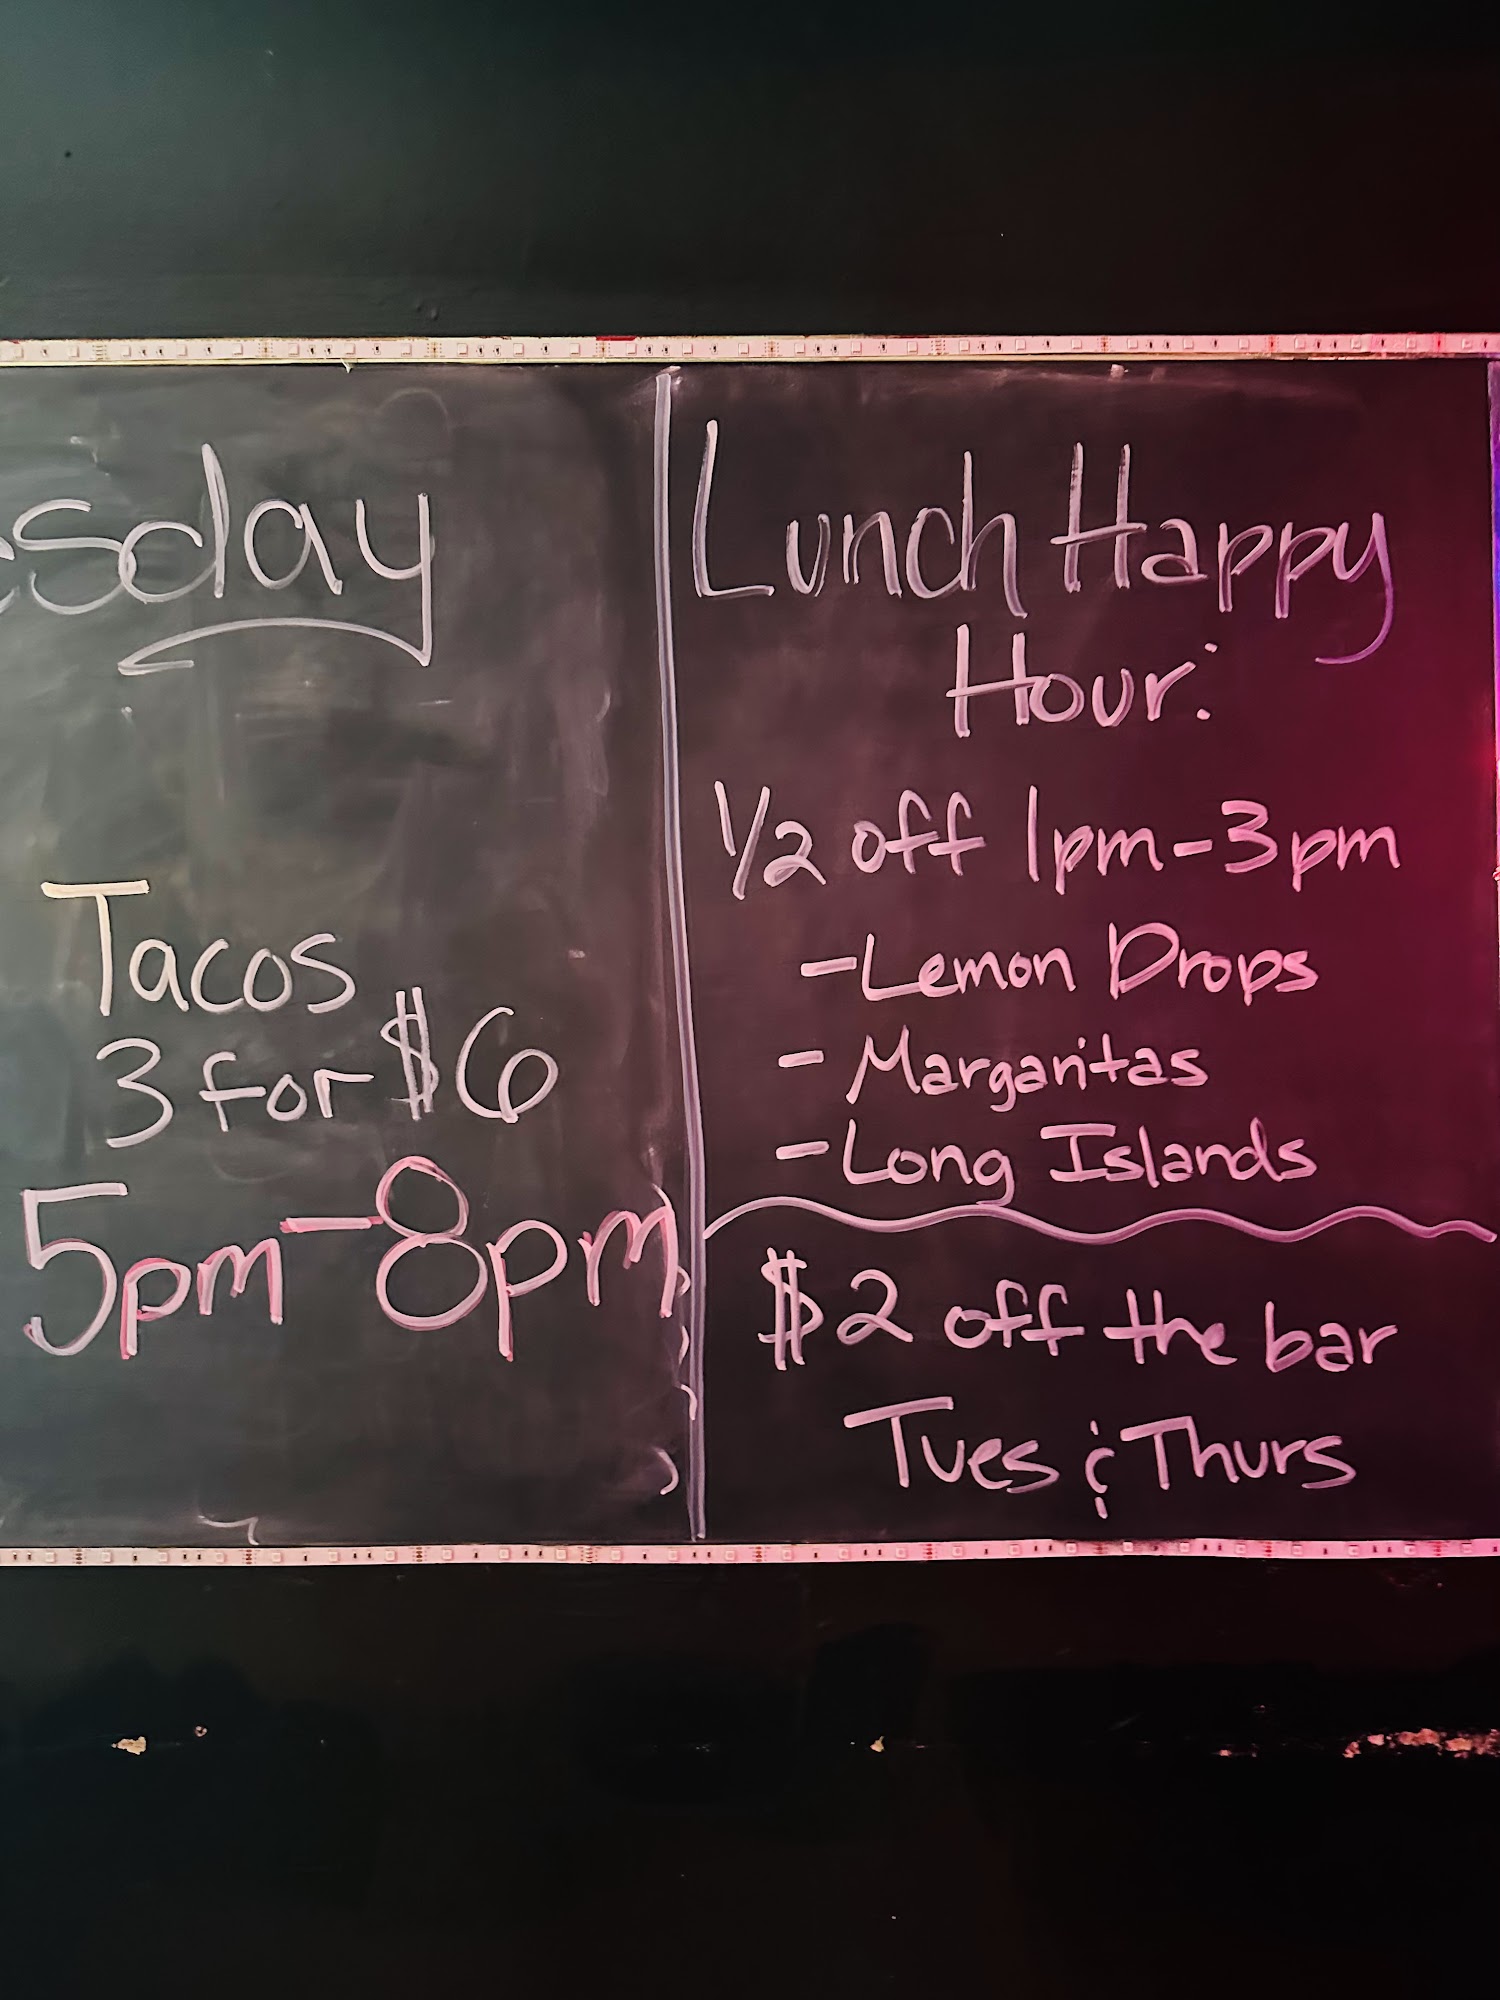 esday
Tacos
3 for $6
5pm-8pm
Lunch Happy
Hour:
1/2 off 1pm-3pm
-Lemon Drops
- Margaritas
-Long Islands
$2 off the bar
Tues & Thurs